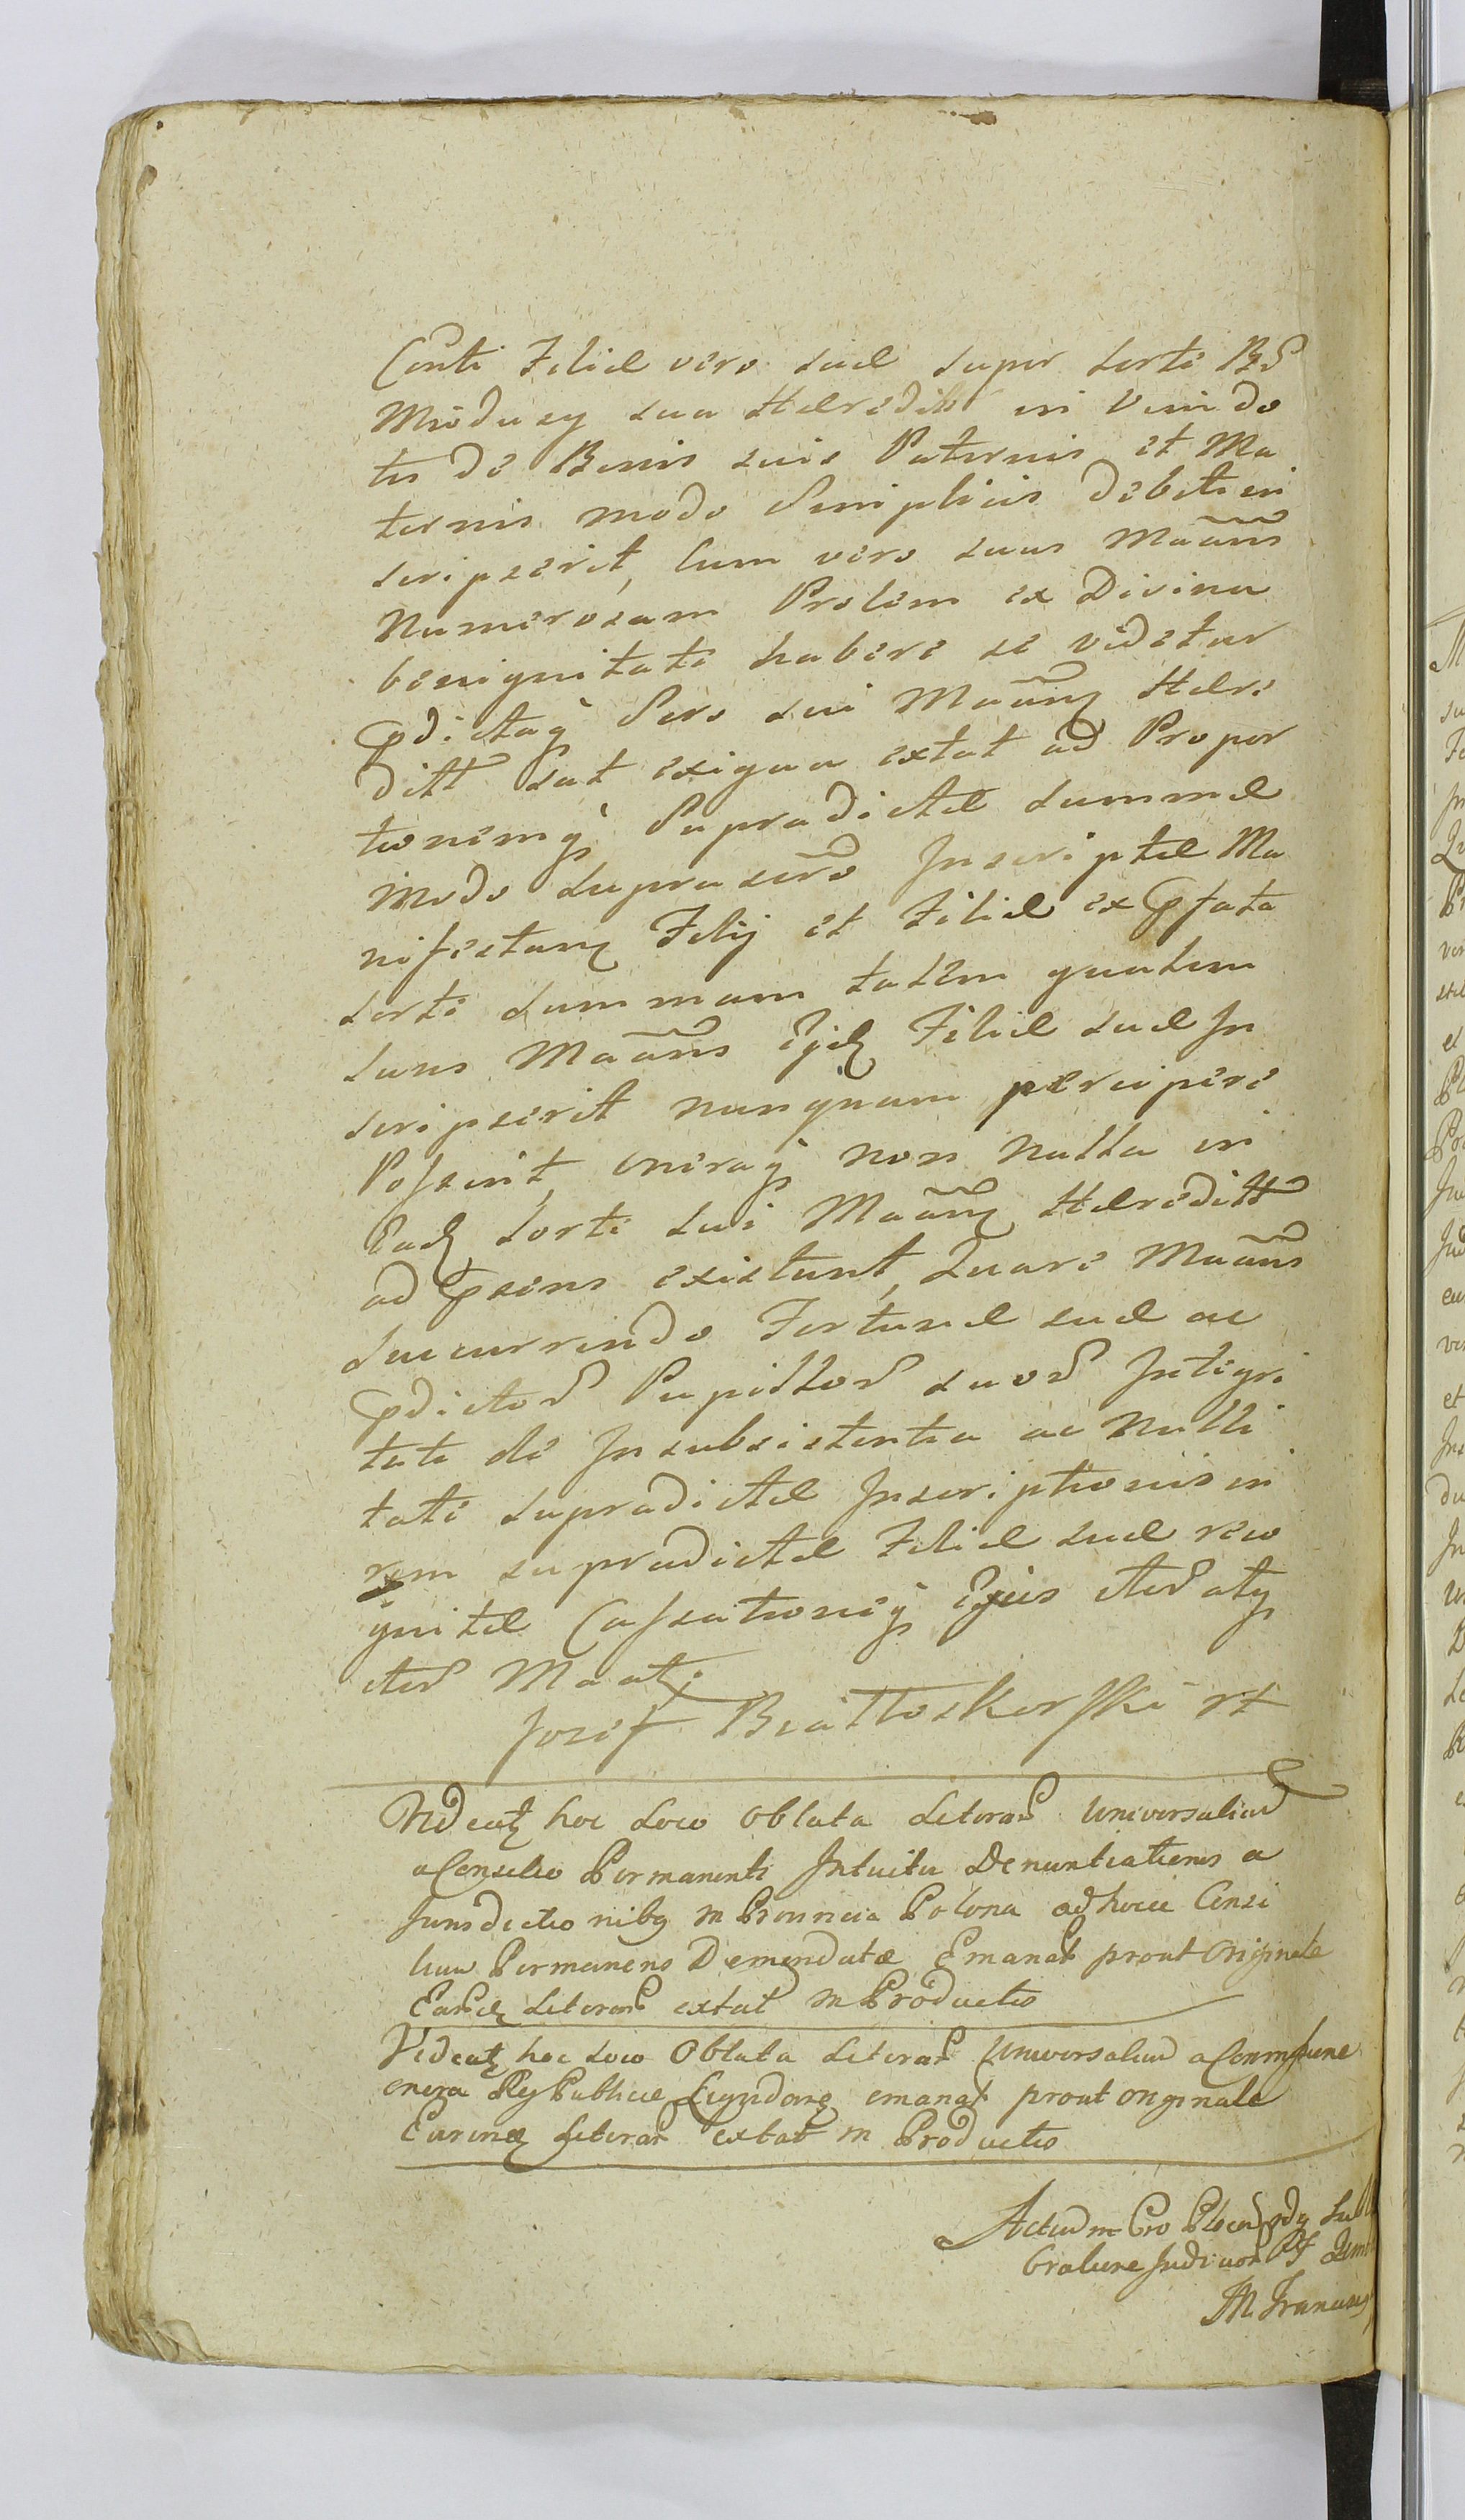 Conti Filiæ vero suæ super sorte
Miodusy sua Hæredit in Vim do
tis de Bonis suis Paternis et Ma
ternis modo Simplicis debiti in
scripserit, Cum vero suus Maãns
Numerosam Prolem ex Divina
benignitate habere se videtur
Pdictaq Sors sui Maãng Hære
ditt sat exigua extat ad Propor
tionemq Supradictæ summæ
modo suprascro Inscriptæ Ma
nifestang Filij et Filiæ ex Pfata
sorte summam talem qualem
suus Maãns Ejd Filiæ suæ In
scripserit nunquam percipere
Possint, oneraq non nulla in
Ead sorte sui Maãng Hæreditt
ad Psens existunt, Quare Maãns
succurrendo Fortunæ suæ ac
Pdictor Pupillor suor Integri
tati de Insubsistentia ac Nulli
tate supradictæ Inscriptionis in
rem supradictæ Filiæ suæ reco
gnitæ Cassationeq Ejus iter atq
iter Maat;
Jozef Białłoskorski
Videatz hoc Loco Oblata Literar Universaliu
a Consilio Permanenti Intuitu Denuntiationis a
Jurisdictionibg in Provincia Polona ad hocce Consi
lium Permanens Demendatæ Emanat prout Originale
Earund Literar extat in Producto
Videatz hoc Loco Oblata Literar Universaliu a Commissione
onera ReyPublicæ emanat prout originale
Earund Literar extat in Producto
Actum in Cro